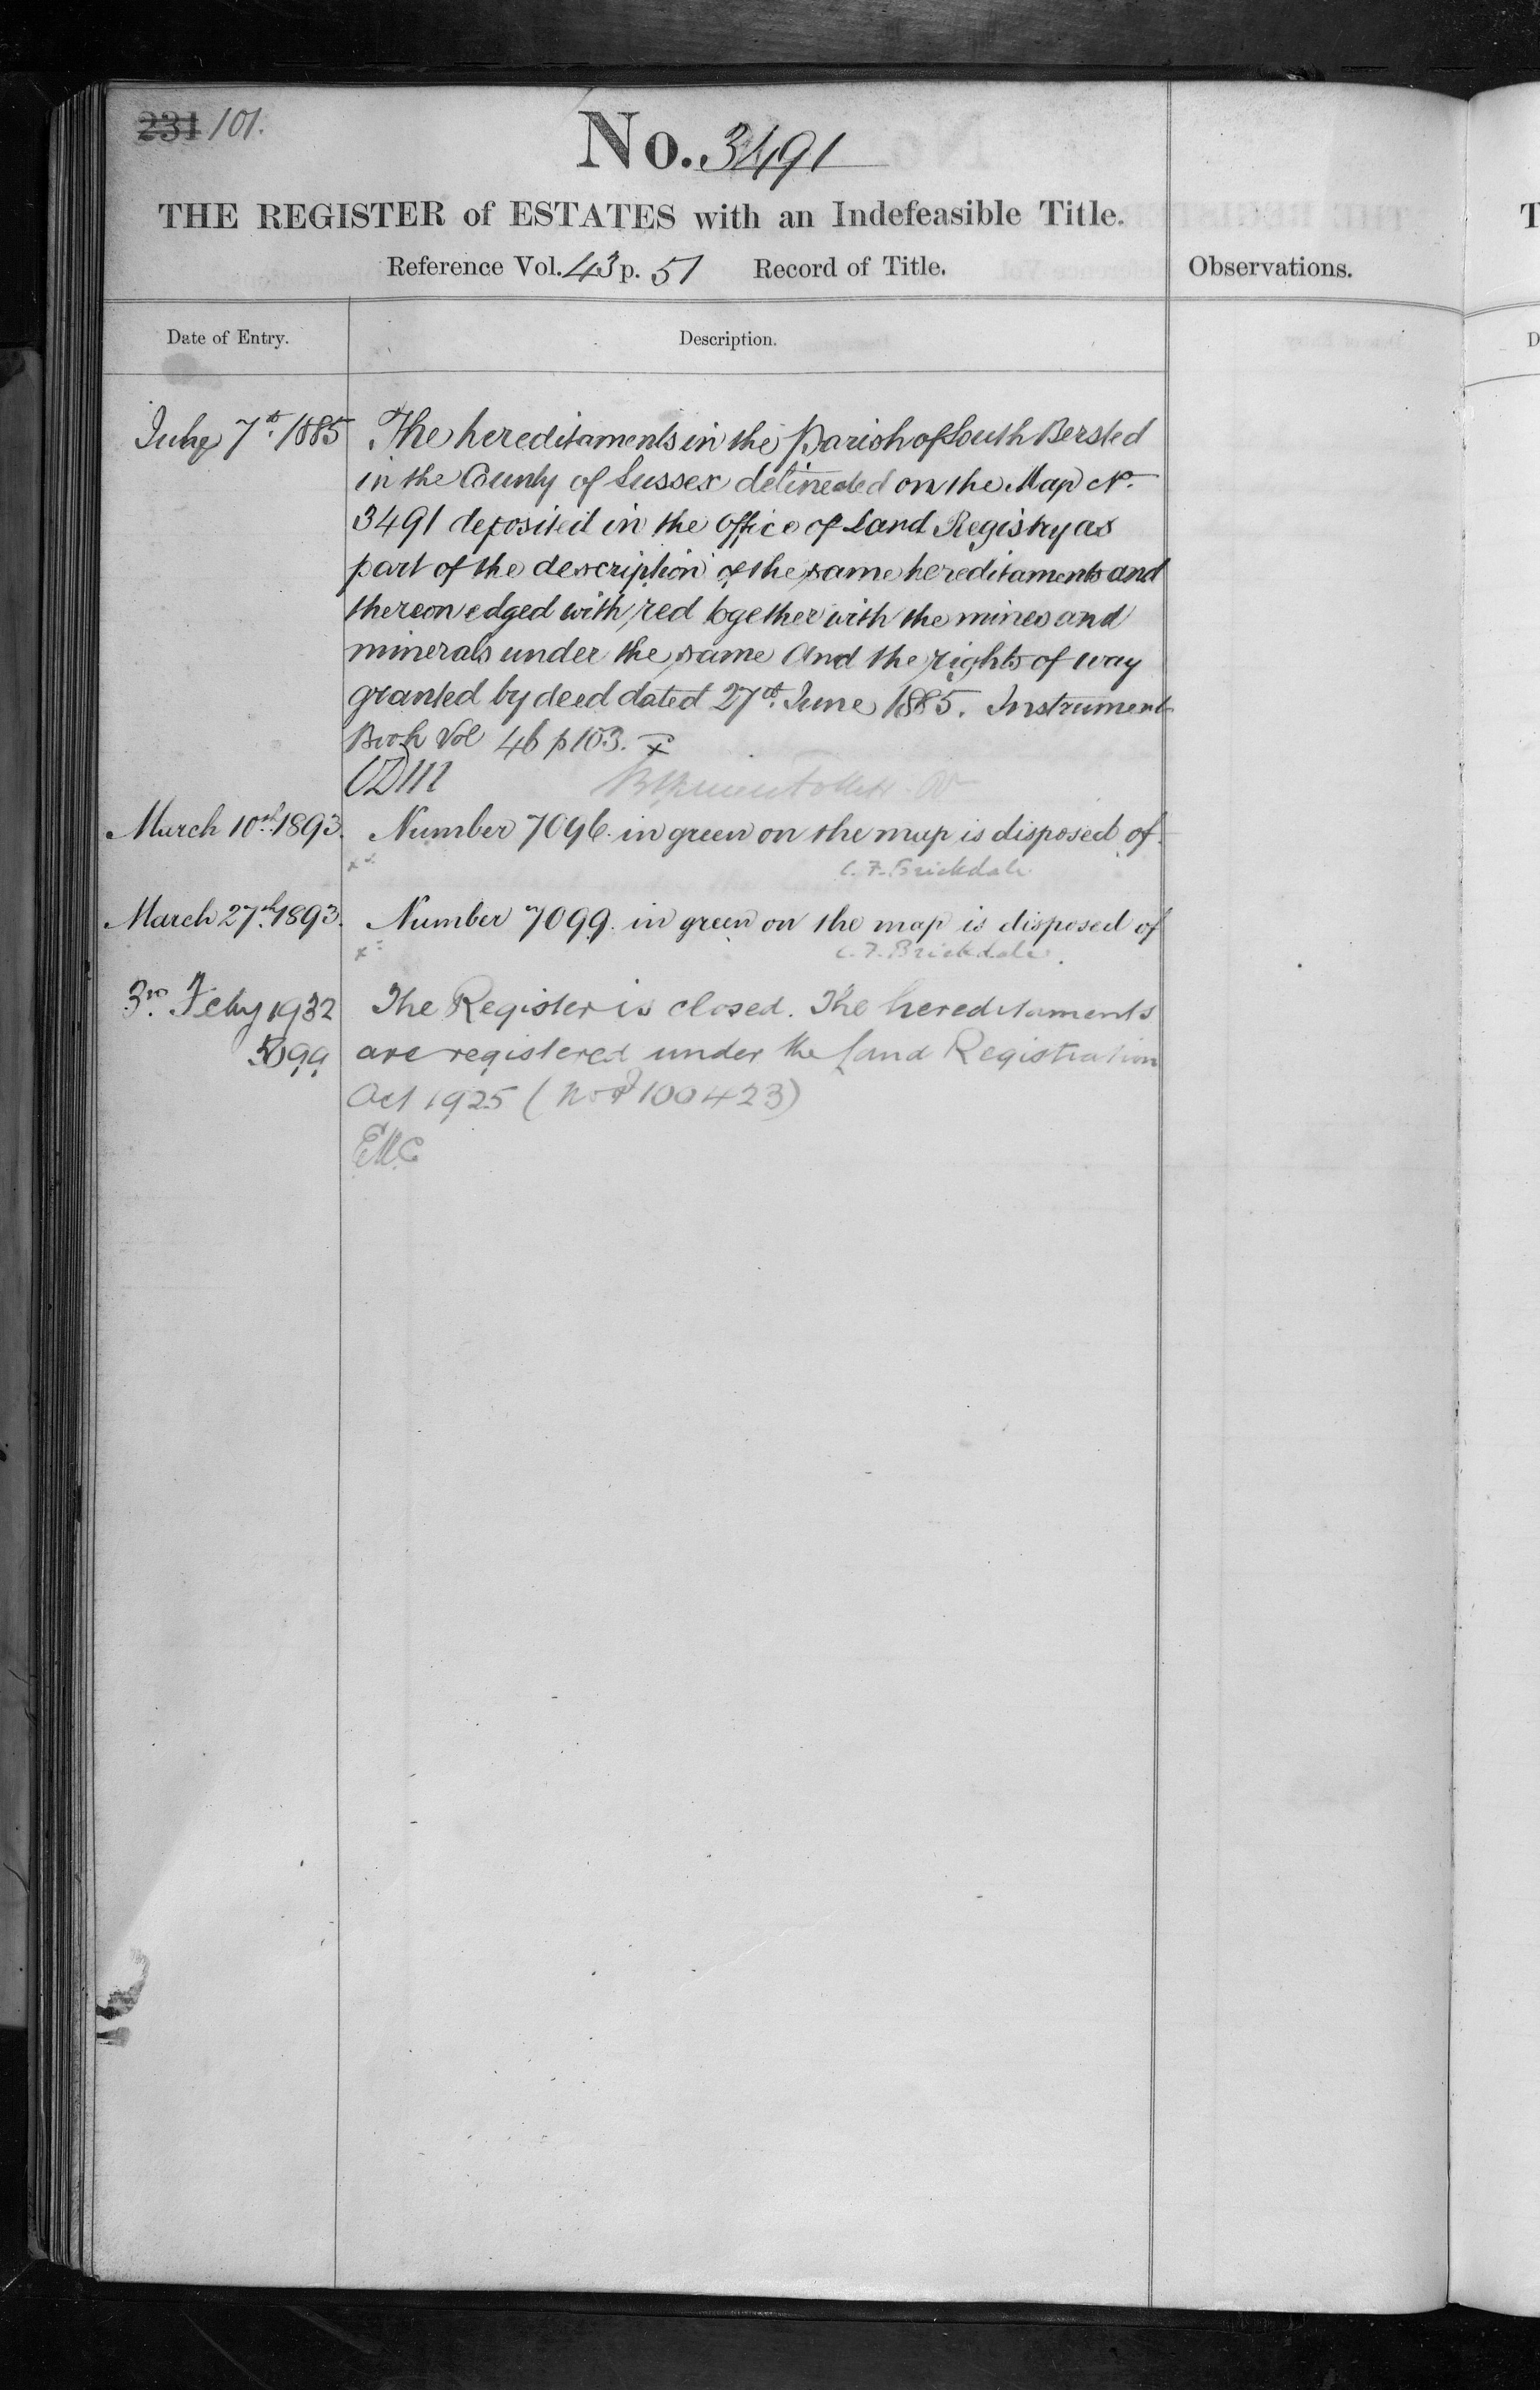 231 101.
No. 3491
THE REGISTER of ESTATES with an Indefeasible Title.
Reference Vol. 43 p. 51 Record of Title.
Observations.
Date of Entry.
Description.
July 7th 1885 The hereditaments in the Parish of South Bersted
in the County of Sussex delineated on the Map No.
3491 deposited in the Office of Land Registry as
part of the description of the same hereditaments and
thereon edged with red together with the mines and
minerals under the same And the rights of way
granted by deed dated 27th June 1885. Instrument
Book Vol 46 p 103. x
March 10th 1893. Number 7096 in green on the map is disposed of.
C. F. Brickdale
March 27th 1893. Number 7099 in green on the map is disposed of
C. F. Brickdale.
3rd Feby 1932 The Register is closed. The hereditaments
5099 are registered under the Land Registration
Act 1925 (No P 100423)